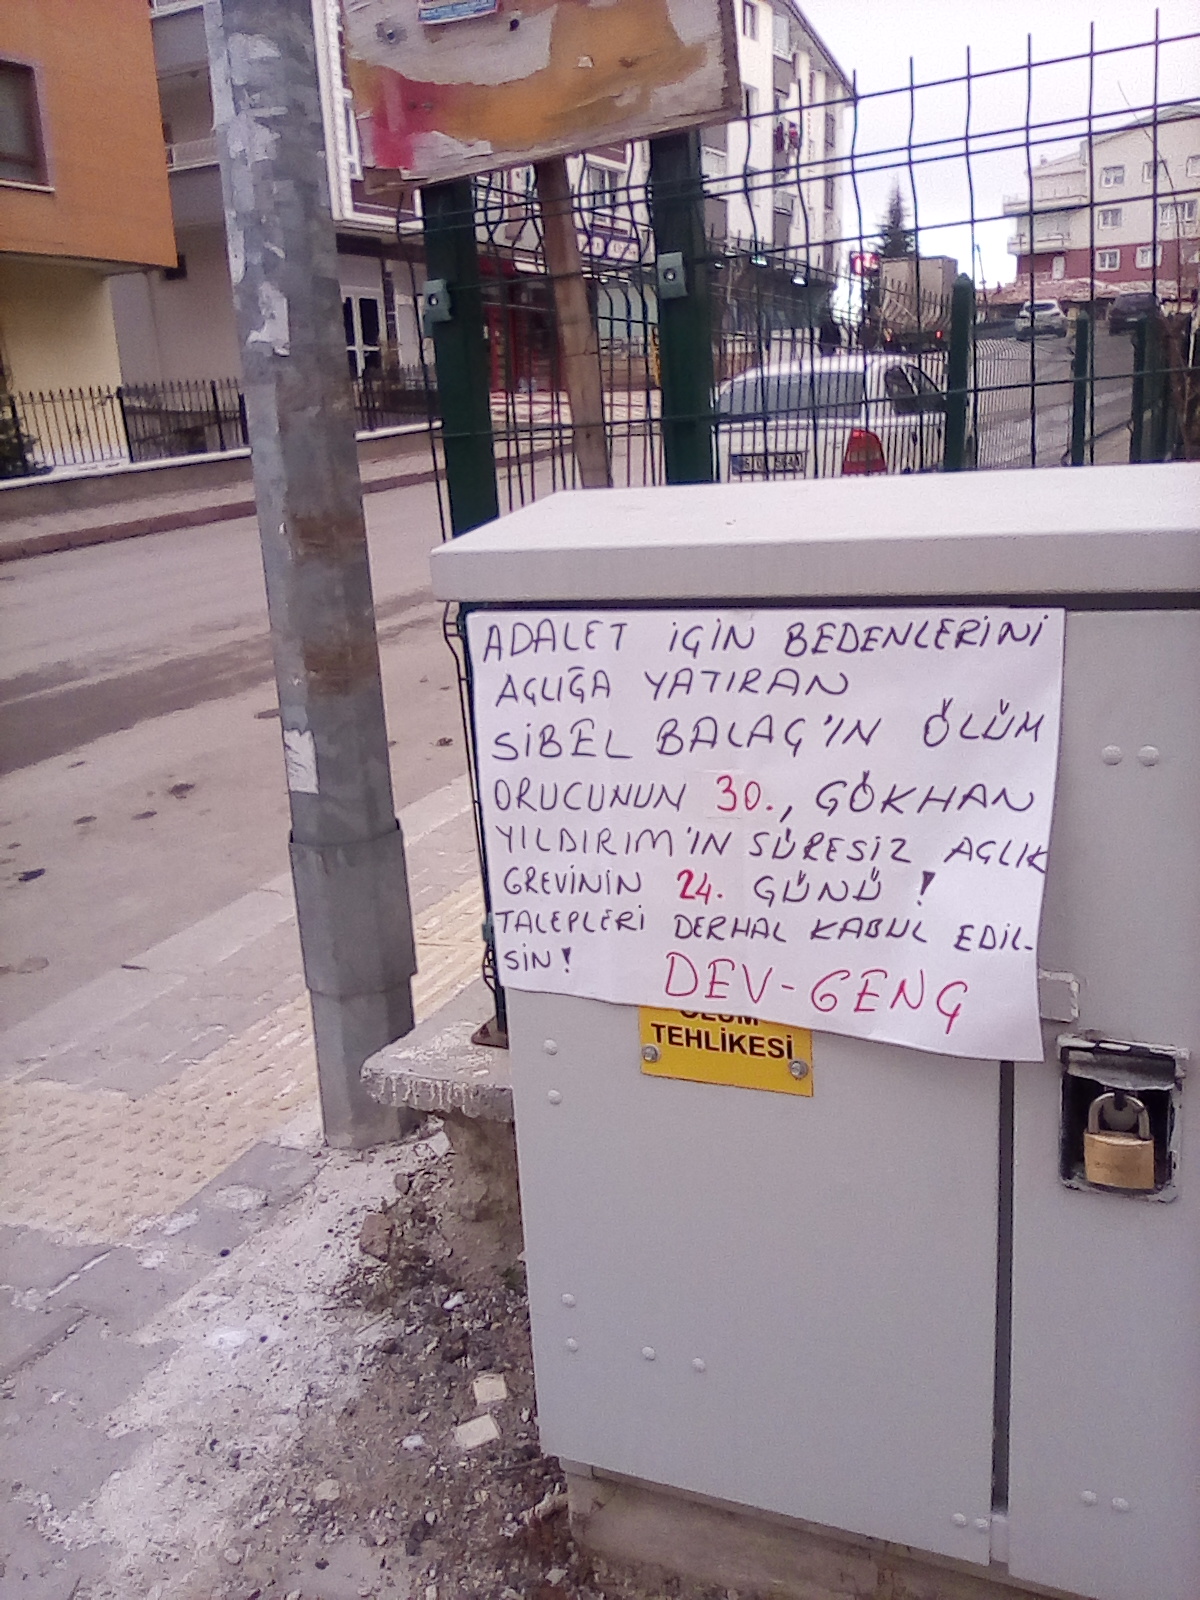 ADALET İÇİN BEDENLERİNİ
AÇLIĞA YATIRAN
SİBEL BALAÇ'IN ÖLÜM
ORUCUNUN 30., GÖKHAN
YILDIRIM'IN SÜRESİZ AÇLIK
GREVİNİN 24. GÜNÜ!
TALEPLERİ DERHAL KABUL EDİL-
SİN!
DEV-GENÇ
ÖLÜM
TEHLİKESİ